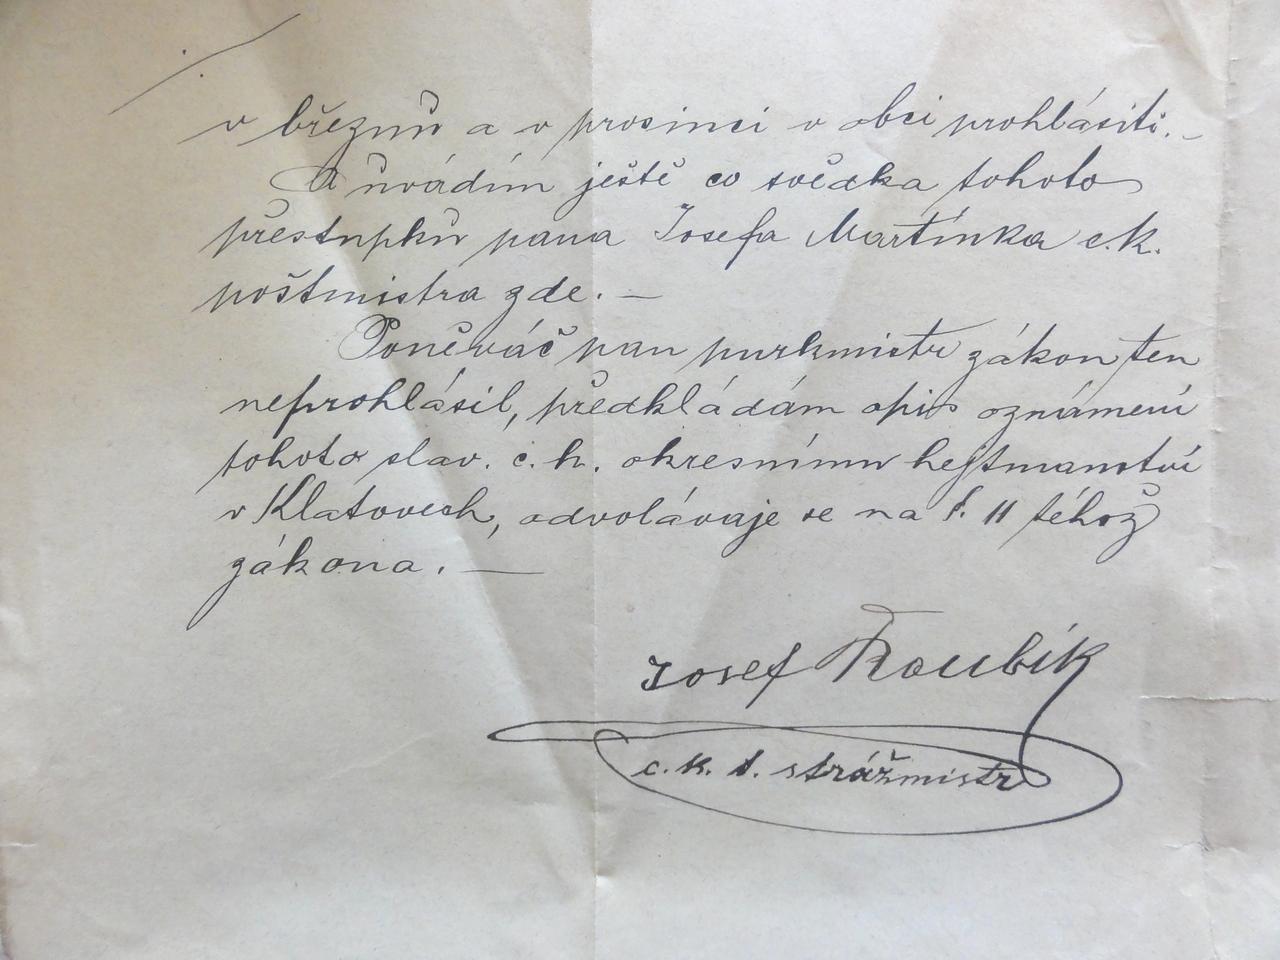 v březnu a v prosinci v obci prohlásiti. –
A uvádím ještě co svědka tohoto
přestupku pana Josefa Martínka c. k.
poštmistra zde. –
Poněváč pan purkmistr zákon ten
neprohlásil, předkládám opis oznámení
tohoto slav. c. k. okresnímu hejtmanství
v Klatovech, odvolávaje se na §. 11 téhož
zákona. –
Josef Roubík
c. k. t. strážmistr